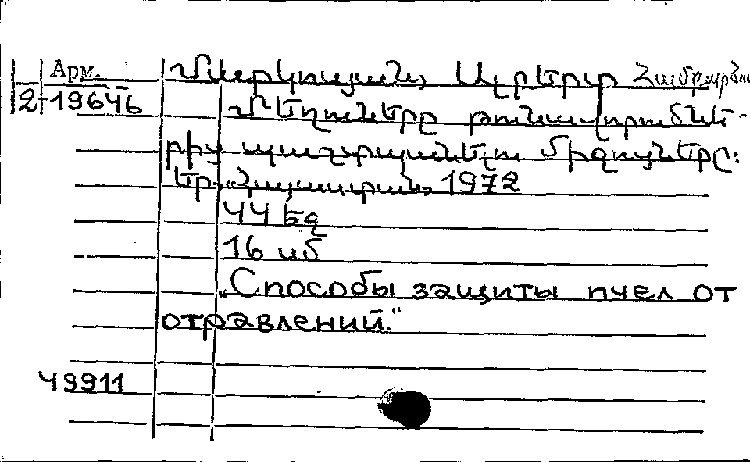 Арм.
2-19646
Մարկոսյան, Ալբերտ Համբարձու
Մեղուները թունավորումնե-
րից պաշտպանելու միջոցները:
Եր. Հայաստան, 1972
44 էջ
16 սմ
„Способы защиты пчел от
отравлений."
49911